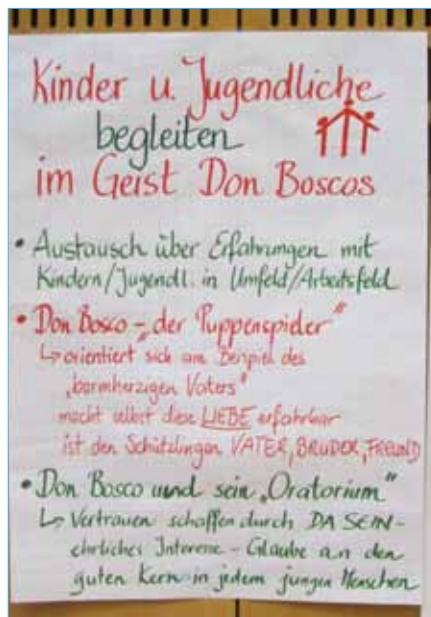 Kinder u. Jugendliche
begleiten
im Geist Don Boscos
• Austausch über Erfahrungen mit
Kindern/Jugendl. in Umfeld/Arbeitsfeld
• Don Bosco - „der Puppenspieler"
↳ orientiert sich am Beispiel des
„barmherzigen Vaters"
macht selbst diese LIEBE erfahrbar
ist den Schützlingen VATER, BRUDER, FREUND
• Don Bosco und sein „Oratorium"
↳ Vertrauen schaffen durch DA SEIN -
ehrliches Interesse - Glaube an den
guten Kern in jedem jungen Menschen